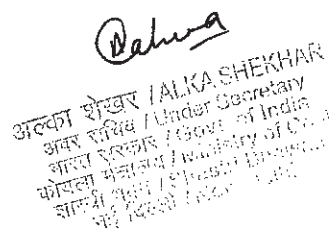 अल्का शेखर / ALKA SHEKHAR
अवर सचिव / Under Secretary
भारत सरकार / Govt. of India
कोयला मंत्रालय / Ministry of
शास्त्री भवन / Shastri
नई दिल्ली / New